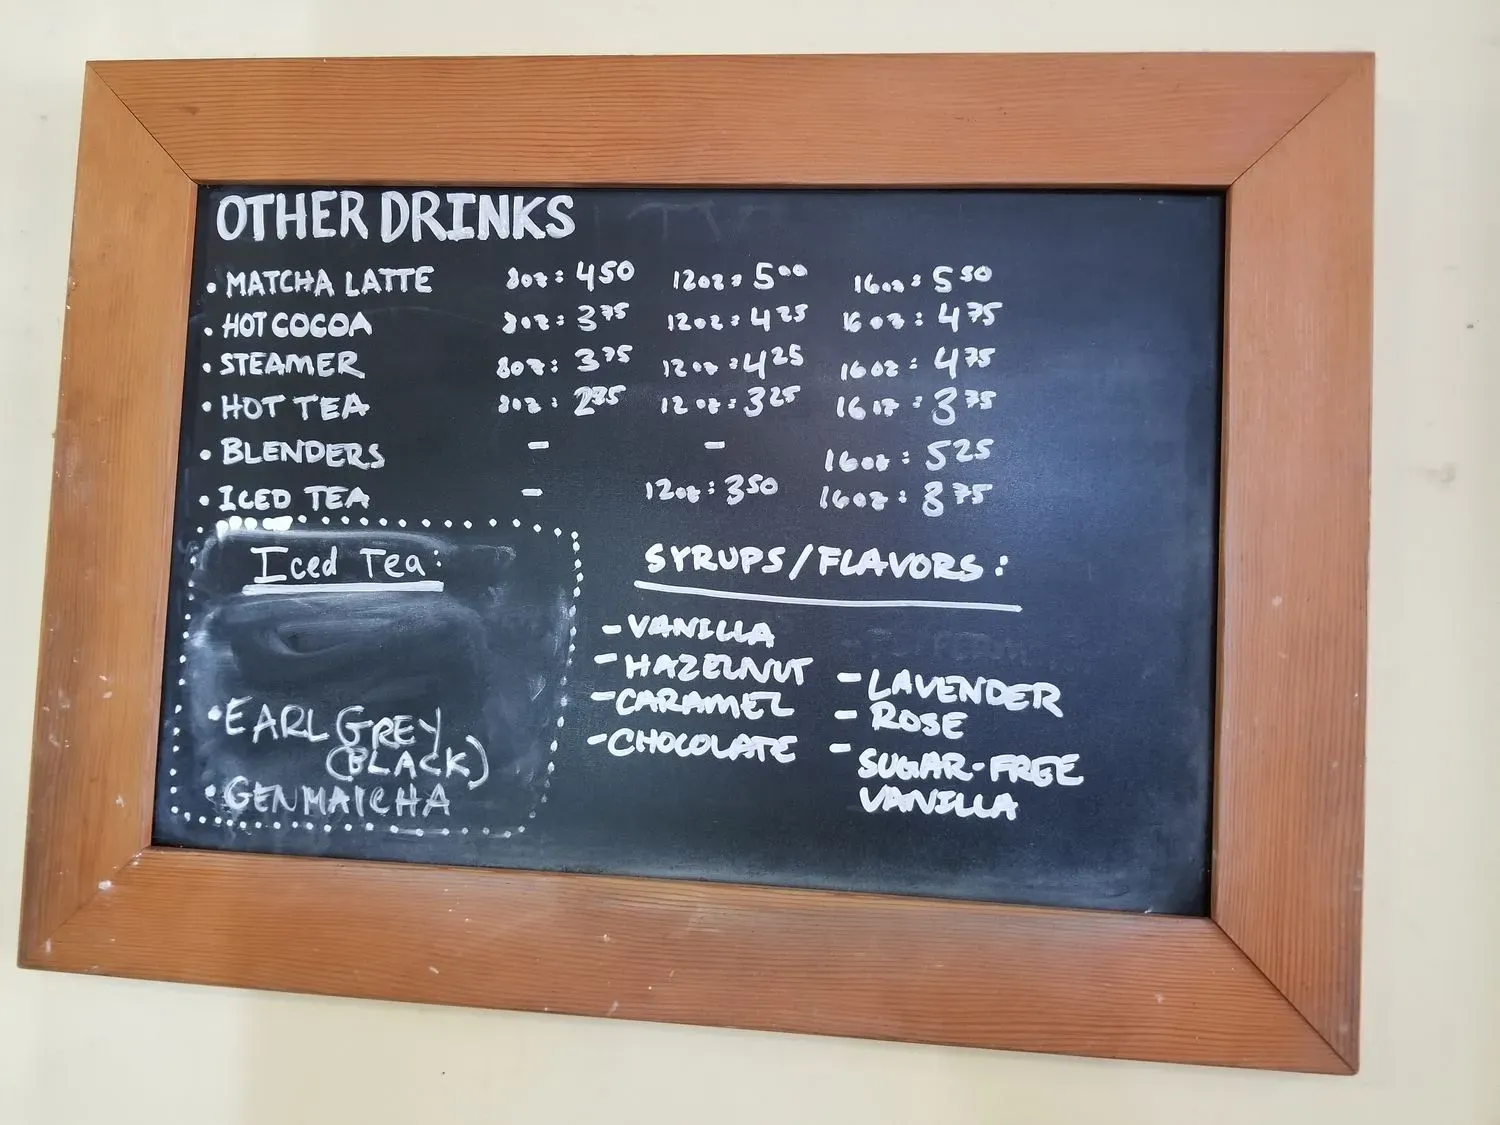 OTHER DRINKS
• MATCHA LATTE 8oz: 4 50 12oz: 5 00 16oz: 5 50
• HOT COCOA 8oz: 3 75 12oz: 4 25 16oz: 4 75
• STEAMER 8oz: 3 75 12oz: 4 25 16oz: 4 75
• HOT TEA 8oz: 2 75 12oz: 3 25 16oz: 3 75
• BLENDERS - - 16oz: 5 25
• ICED TEA - 12oz: 3 50 16oz: 3 75
Iced Tea:
• EARL GREY
(BLACK)
• GENMAICHA
SYRUPS/FLAVORS:
- VANILLA
- HAZELNUT
- CARAMEL
- CHOCOLATE
- LAVENDER
- ROSE
- SUGAR-FREE
VANILLA